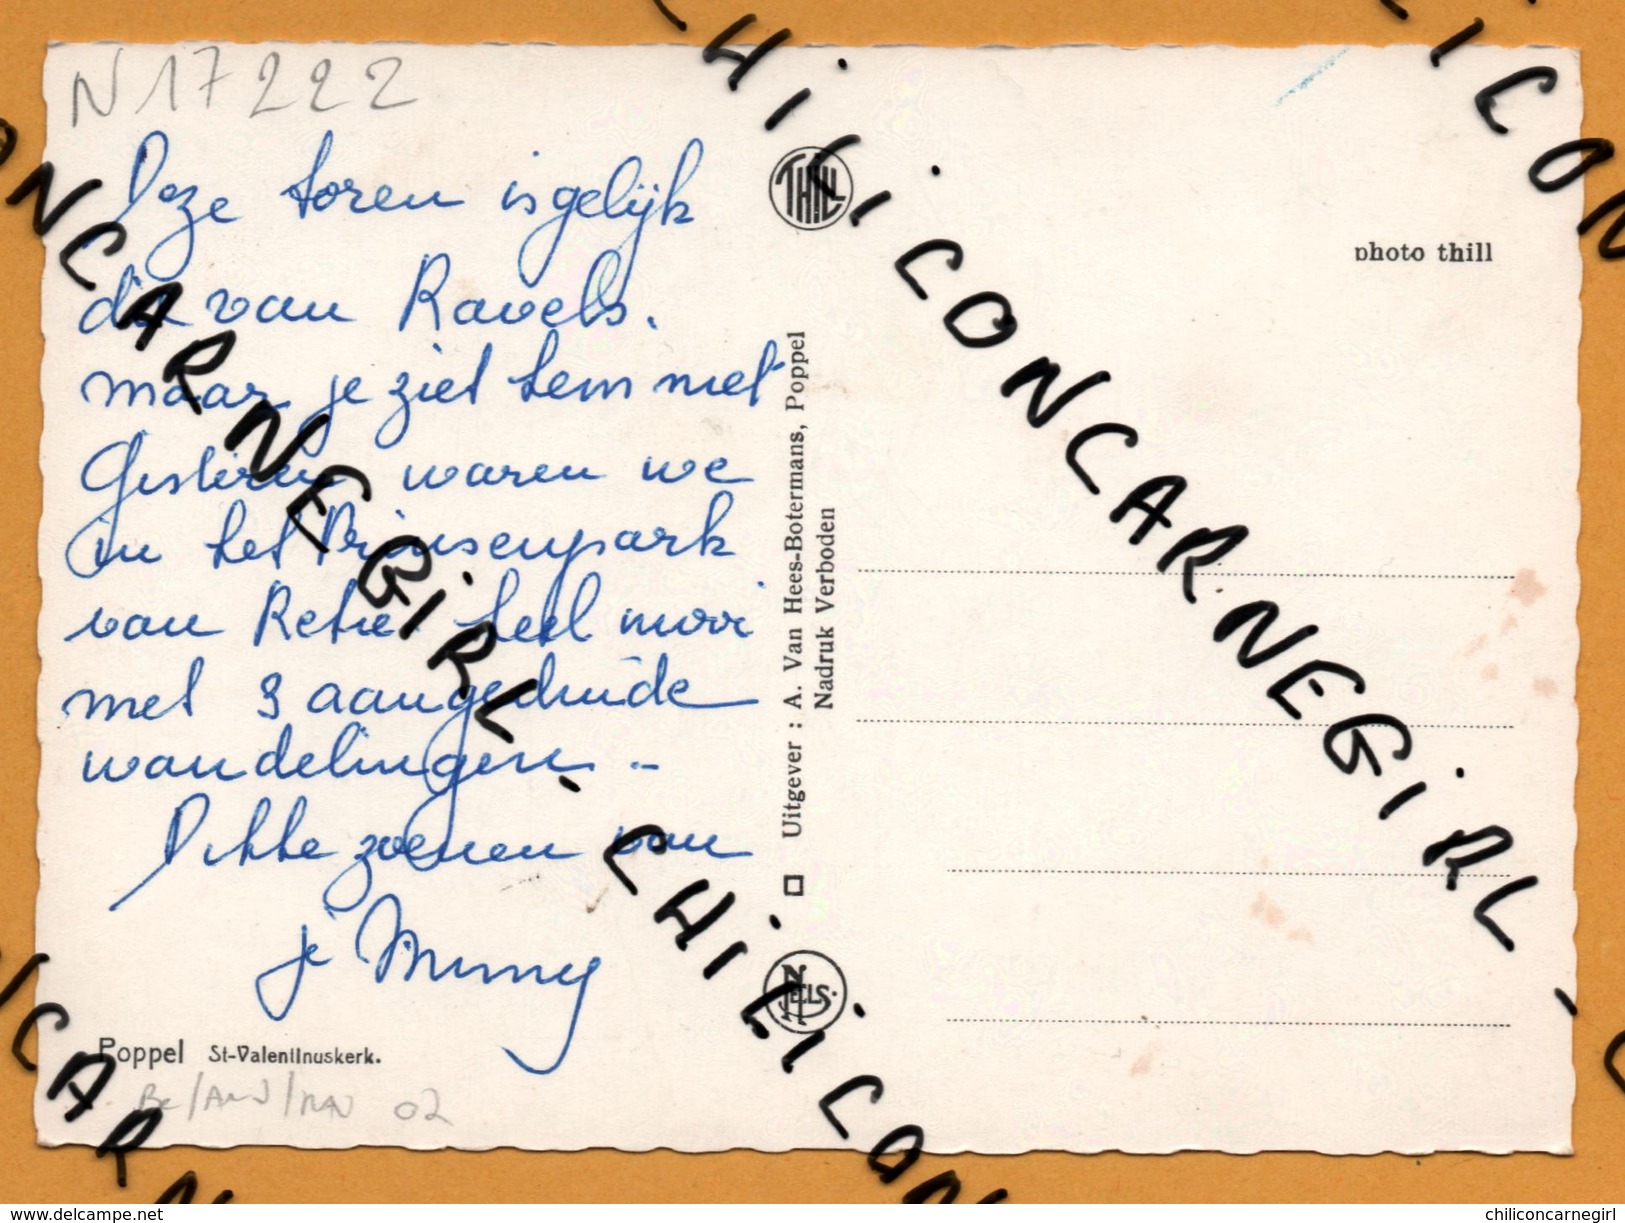 N 17222
Deze toren is gelijk
die van Ravels.
maar je ziet hem niet
Gisteren waren we
in het Prinsenpark
van Retie. heel mooi
met 3 aangeduide
wandelingen -
Dikke zoenen van
je Mimy
Poppel St-Valentinuskerk.
02
THILL
photo thill
Uitgever : A. Van Hees-Botermans, Poppel
Nadruk Verboden
NELS.
CHiLiCONCARNEGiRL
CHiLiCONCARNEGiRL
www.delcampe.net
chiliconcarnegirl